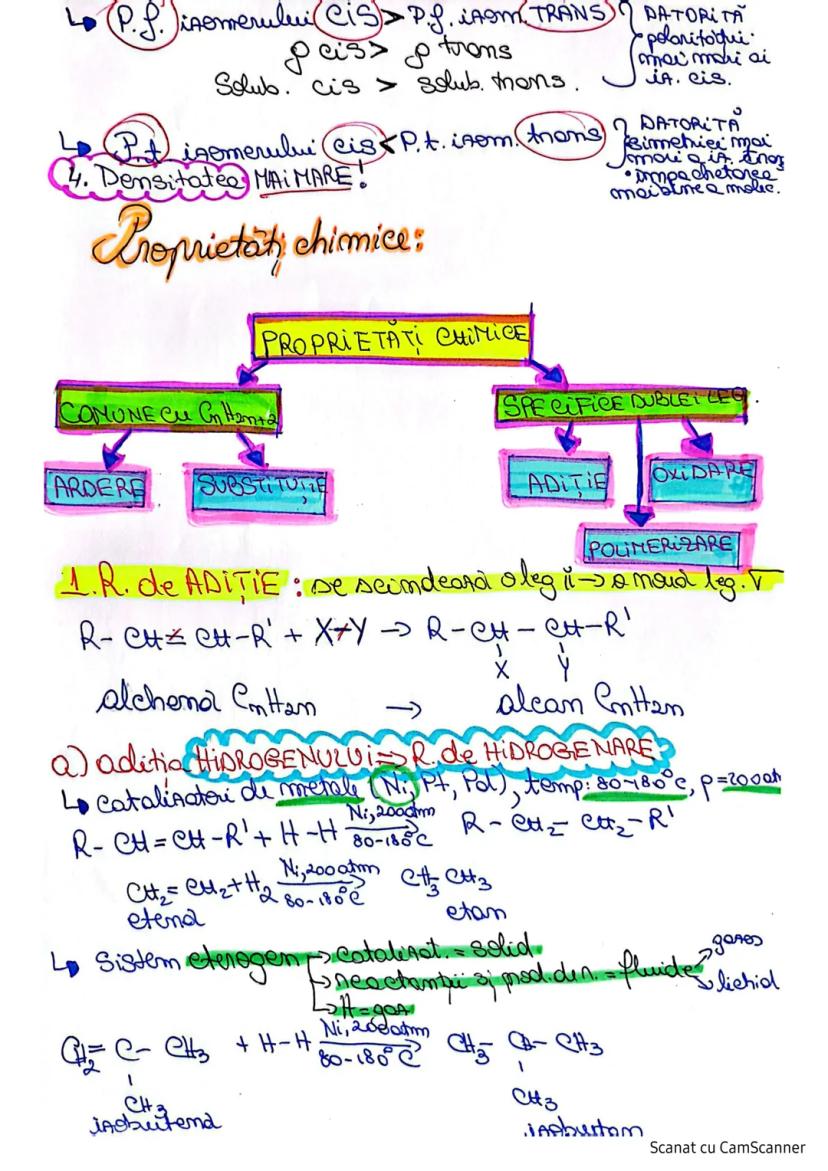 ↳ P.f. izomerului cis > P.f. izom. TRANS } DATORITĂ
polarităţii
mai mari ai
iz. cis.
ρ cis > ρ trans
Solub. cis > solub. trans.
↳ P.t izomerului cis < P.t. izom. trans } DATORITĂ
simetriei mai
mari a iz. trans
• împachetarea
mai bine a molec.
4. Densitatea MAI MARE!
Proprietăţi chimice:
PROPRIETĂŢI CHIMICE
COMUNE CU CnH2n+2
SPECIFICE DUBLEI LEG.
ARDERE
SUBSTITUŢIE
ADIŢIE
OXIDARE
POLIMERIZARE
1. R. de ADIŢIE : se scindează o leg π → o nouă leg. ∇
R- CH = CH -R' + X-Y → R - CH - CH - R'
X Y
alchenă CnH2n → alcan CnH2n
a) adiţia HIDROGENULUI => R. de HIDROGENARE
↳ catalizatori de metale (Ni, Pt, Pd), temp: 80-180°C, p=200at
R- CH = CH -R' + H -H Ni, 200atm 80-180°C → R - CH2 - CH2 - R'
CH2 = CH2 + H2 Ni, 200atm 80-180°C → CH3 CH3
etenă etan
↳ Sistem eterogen → catalizat. = solid
→ reactanţii şi prod. din. = fluide → gazos
→ lichid
→ H = gaz
CH2 = C - CH3 + H-H Ni, 200atm 80-180°C → CH3 - CH - CH3
CH3 CH3
izobutenă izobutan
Scanat cu CamScanner